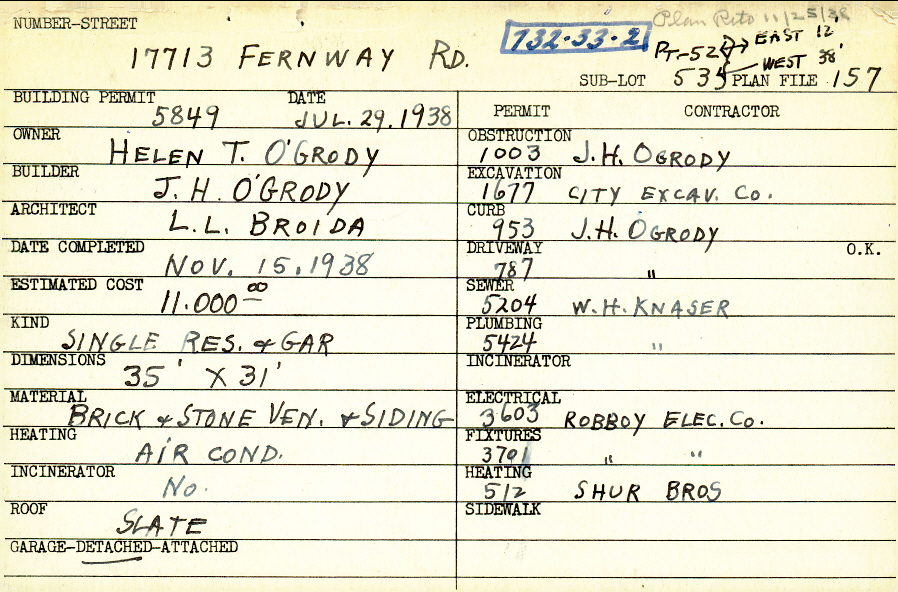 NUMBER-STREET
Plan Reto 11/25/38
17713 FERNWAY RD.
732-33-2
PT-52 EAST 12'
WEST 38'
SUB-LOT 534 PLAN FILE 157
BUILDING PERMIT DATE
5849 JUL. 29. 1938
OWNER
HELEN T. O'GRODY
BUILDER
J. H. O'GRODY
ARCHITECT
L. L. BROIDA
DATE COMPLETED
NOV. 15. 1938
ESTIMATED COST
11.000 00
KIND
SINGLE RES. & GAR
DIMENSIONS
35' X 31'
MATERIAL
BRICK & STONE VEN. & SIDING
HEATING
AIR COND.
INCINERATOR
NO.
ROOF
SLATE
GARAGE-DETACHED-ATTACHED
PERMIT CONTRACTOR
OBSTRUCTION
1003 J. H. OGRODY
EXCAVATION
1677 CITY EXCAV. CO.
CURB
953 J. H. OGRODY
DRIVEWAY O.K.
787 "
SEWER
5204 W. H. KNASER
PLUMBING
5424 "
INCINERATOR
ELECTRICAL
3603 ROBBOY ELEC. CO.
FIXTURES
3701 " "
HEATING
512 SHUR BROS
SIDEWALK